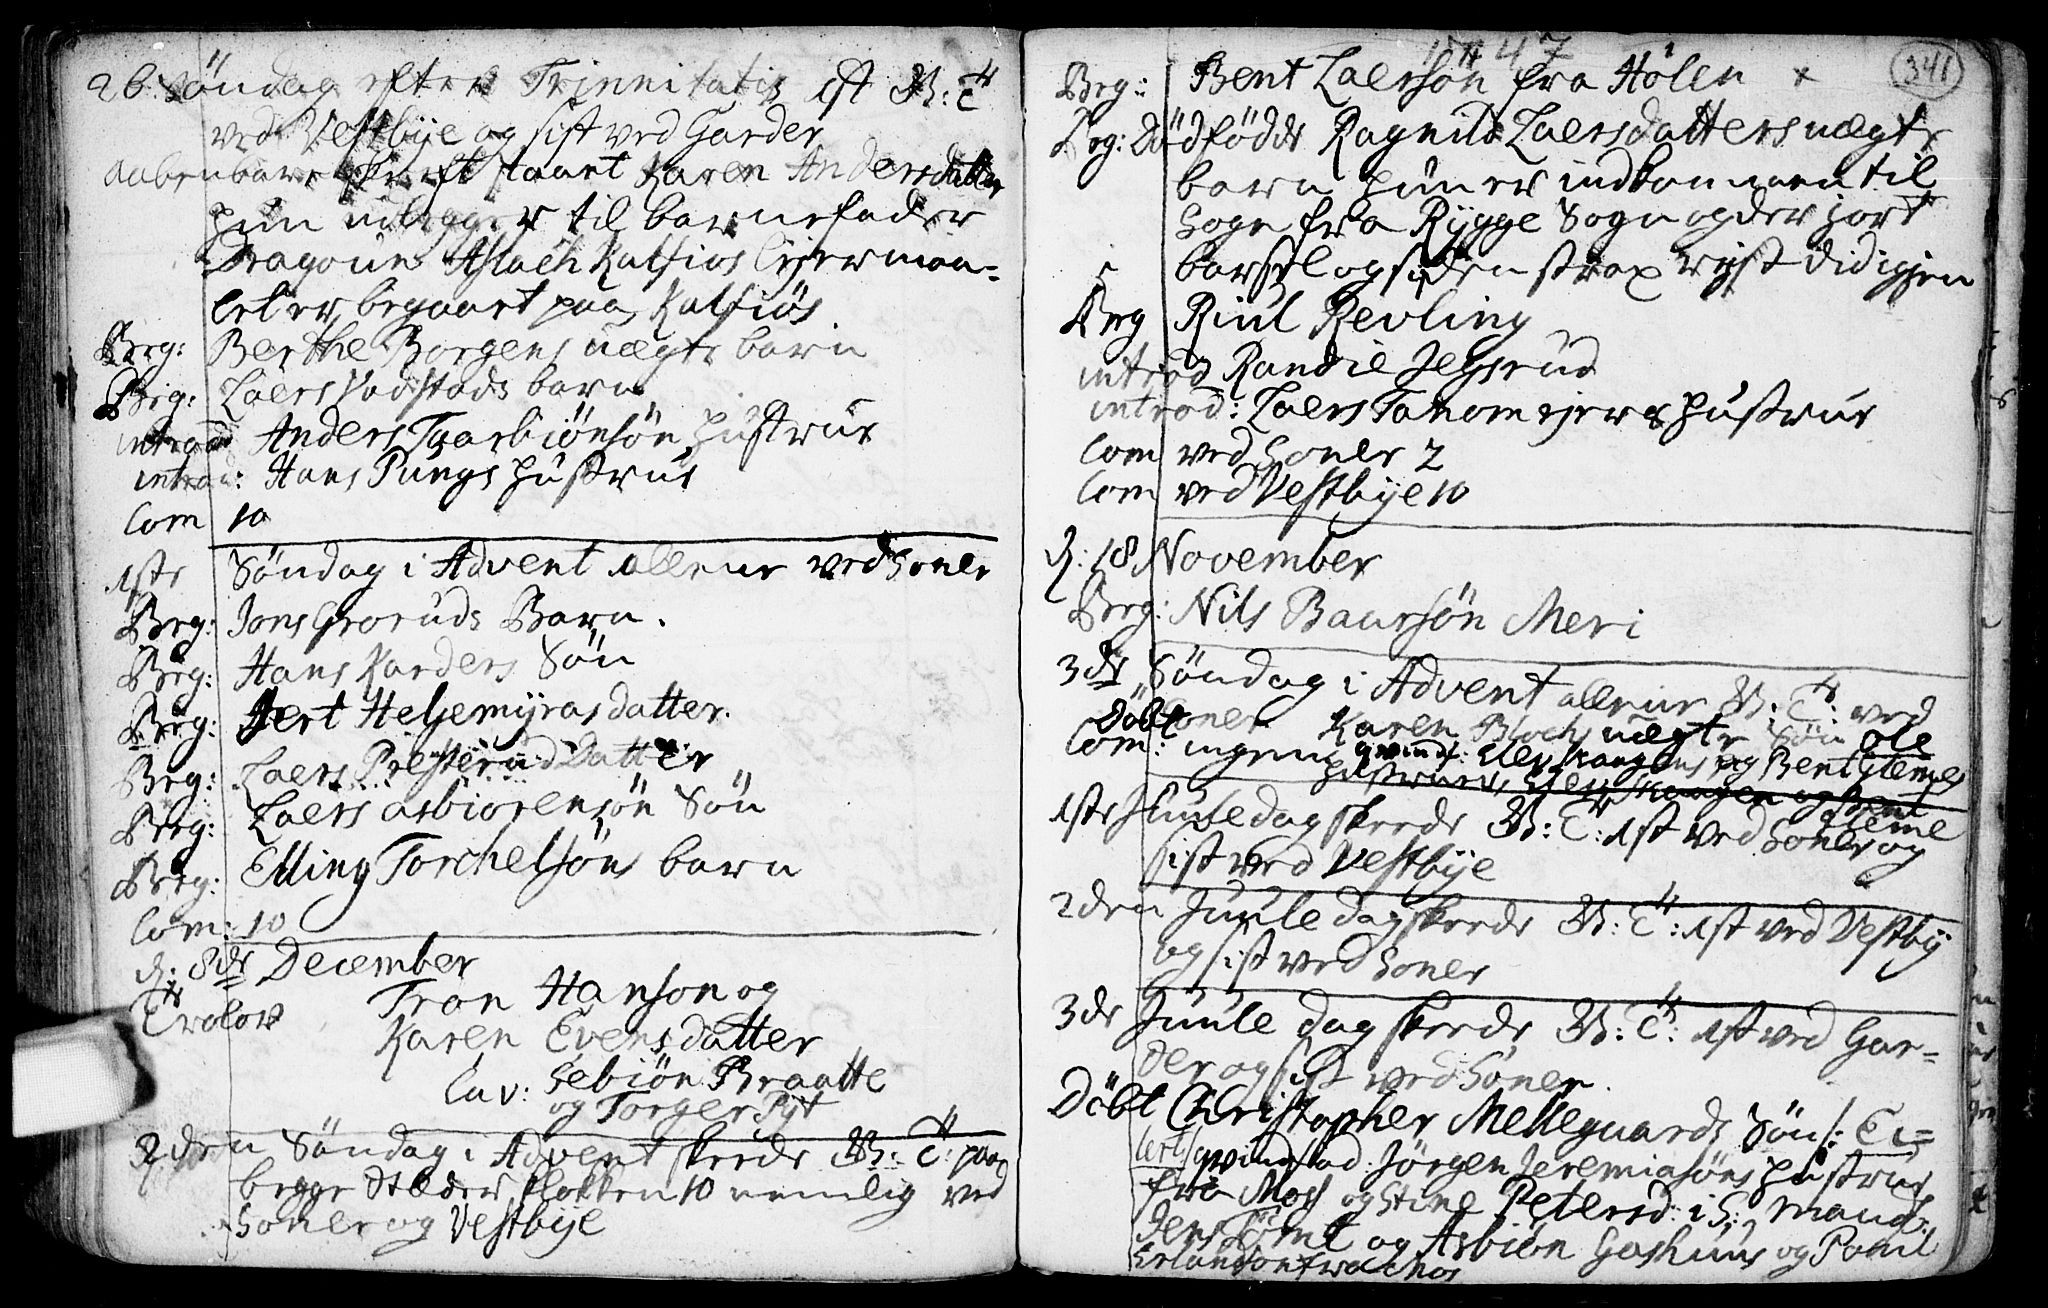 26 Søndag efter Trinnitatis 1st B: T
ved Vestbÿe og sist ved Garder
Aabenbare Skrift staaet Karen Andersdatter
hun udlegger til barnefader
Dragoun Aslach Kalfios leÿermaa-
let er begaaet paa Kalfiøs
Beg: Berthe Borgens uægte barn
Beg: Laers barn
introd Anders Taarbiønsøn hustrue
introd: Hans Pungs hustrue
Com 10
1ste Søndag i Advent allene ved Soner
Beg: Jons Groruds Barn.
Beg: Hans Karders Søn
Beg: Gert Helgemÿras datter.
Beg: Laers Presterud Datter
Beg: Laers asbiørensøn Søn
Beg: Elling Torchelsøns barn
Com: 10
d: 8de December
Trolov Tron Hanson og
Karen Evensdatter
Cav: Sebiøn Braatte
og Torger Pÿt
2den Søndag i Advent skeede B: T: paa
begge Stæder klokken 10 nemlig ved
Soner og Vestbÿe
1747
341
Beg: Bent Laersøn fra Hølen
Beg: Dødfødde Ragnild Laersdatters uægte
barn hun er indkommen til
Sogn fra Rÿgge Sogn og der giort
barsel og siden strax rejst did igjen
Beg Riul Revling
introd Randie Jegsrud
introd: Laers Tahomejers hustrue
Com ved Soner 2
Com ved Vestbÿe 10
d: 18 November
Beg: Nils Baursøn Meri
3de Søndag i Advent allene B: T: ved
Soner
Døbt Karen Blochs uægte Søn Ole
Com: ingen qvind: og Bent Glemes
hustruer, og Bent
Gleme
1ste Juuledag skeede B: T: 1st ved Soner og
sist ved Vestbÿe
2den Juuledag skeede B: T: 1st ved Vestbÿ
og sist ved Soner
3de Juule dag skeede B: T: 1st ved Gar-
der og sist ved Soner.
Døbt Christopher Mellegaards Søn /: Ei-
lert / qvindfad: Jørgen Jeremiasøns hustrue
fra Moss og Stine Petersd: i S: Mandf:
Jens Tømt og Asbiøn Gashuus og Poul
Erlandson fra Mos